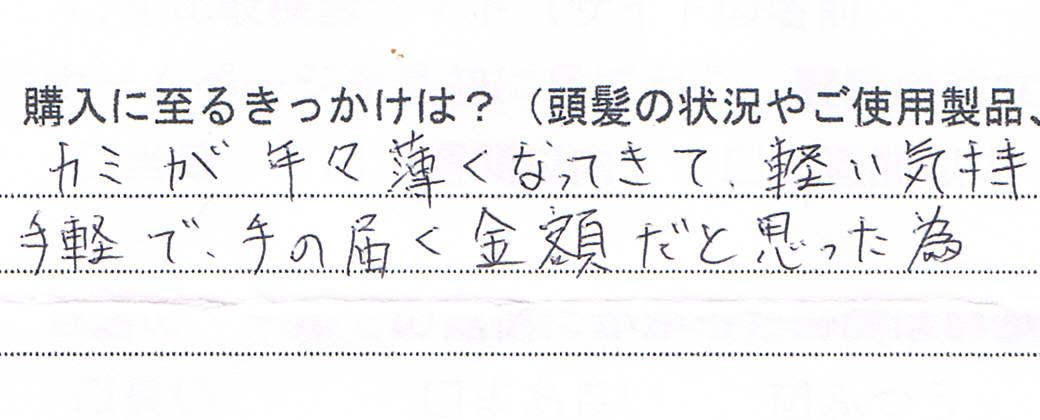 購入に至るきっかけは？（頭髪の状況やご使用製品、
カミが年々薄くなってきて、軽い気持
手軽で、手の届く金額だと思った為